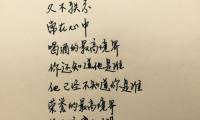 又不轶态
常在心中
喝酒的最高境界
你还知道他是谁
他已经不知道你是谁
荣誉的最高境界